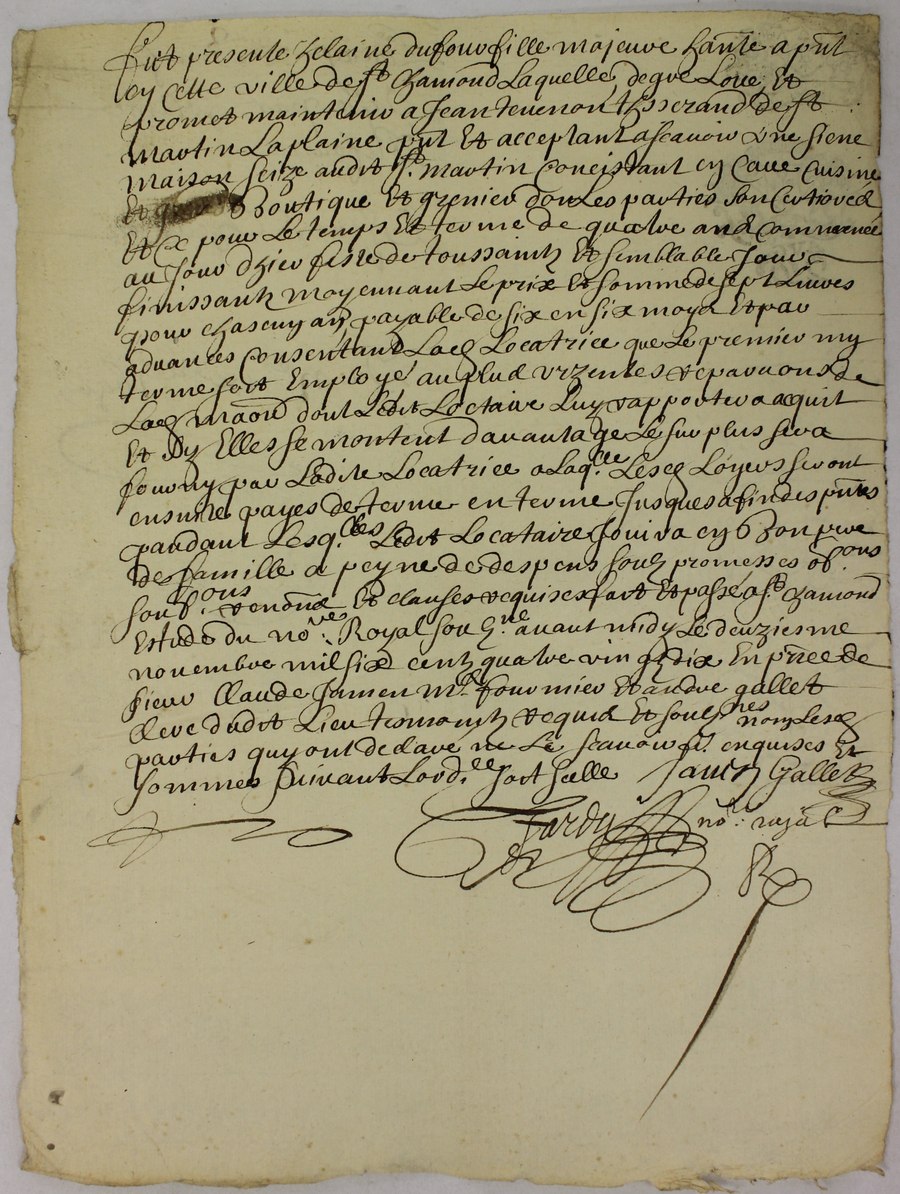 Fut presente helaine dufour fille majeure hante a pnt
en cette ville de st chamond Laquelle de gre Loue Et
promet maintenir a Jean tevenon tisserand de st
martin Laplaine pnt Et acceptant ascavoir Une siene
maison seize audit st martin concistant en Cave Cuisine
Et Boutique Et grenier don Les parties son Certiorées
Et Ce pour Le temps Et terme de quatre ans commencé
au Jour d'hier feste de toussaint Et semblable Jour
finissantz moyennant Le prix Et somme de sept Livres
pour chascung an payable de six en six moys Et par
advances Consentant Lad Locatrice que Le premier my
terme soit Employé au plus Urgentes reparaons de
Lad maon dont Ledit Loctaire Luy rapportera acquit
Et sy Elles se montent davantage Le surplus sera
fourny par Ladite Locatrice a Laqlle Lesd Loyers seront
ensuite payes de terme en terme Jusques a fin des pntes
pandant Lesqlles Ledit Locataire Jouira en Bon pere
de famille a peyne de despens soubz promesses obons
soubons renons Et clauses requises fait Et passé a st chamond
Estude du nore Royal soubne avant midy Le deuziesme
novembre mil six centz quatre vingtz dix En pnce de
sieur Claude Jamen mr fournier Et andre gallet
clerc dudit Lieu tesmointz requis Et soubnes non Lesd
parties quy ont declare ne Le scavoir fr enquises Et
sommes suivant Lordce soit scelle Jamen Gallet
Tardy nore royal